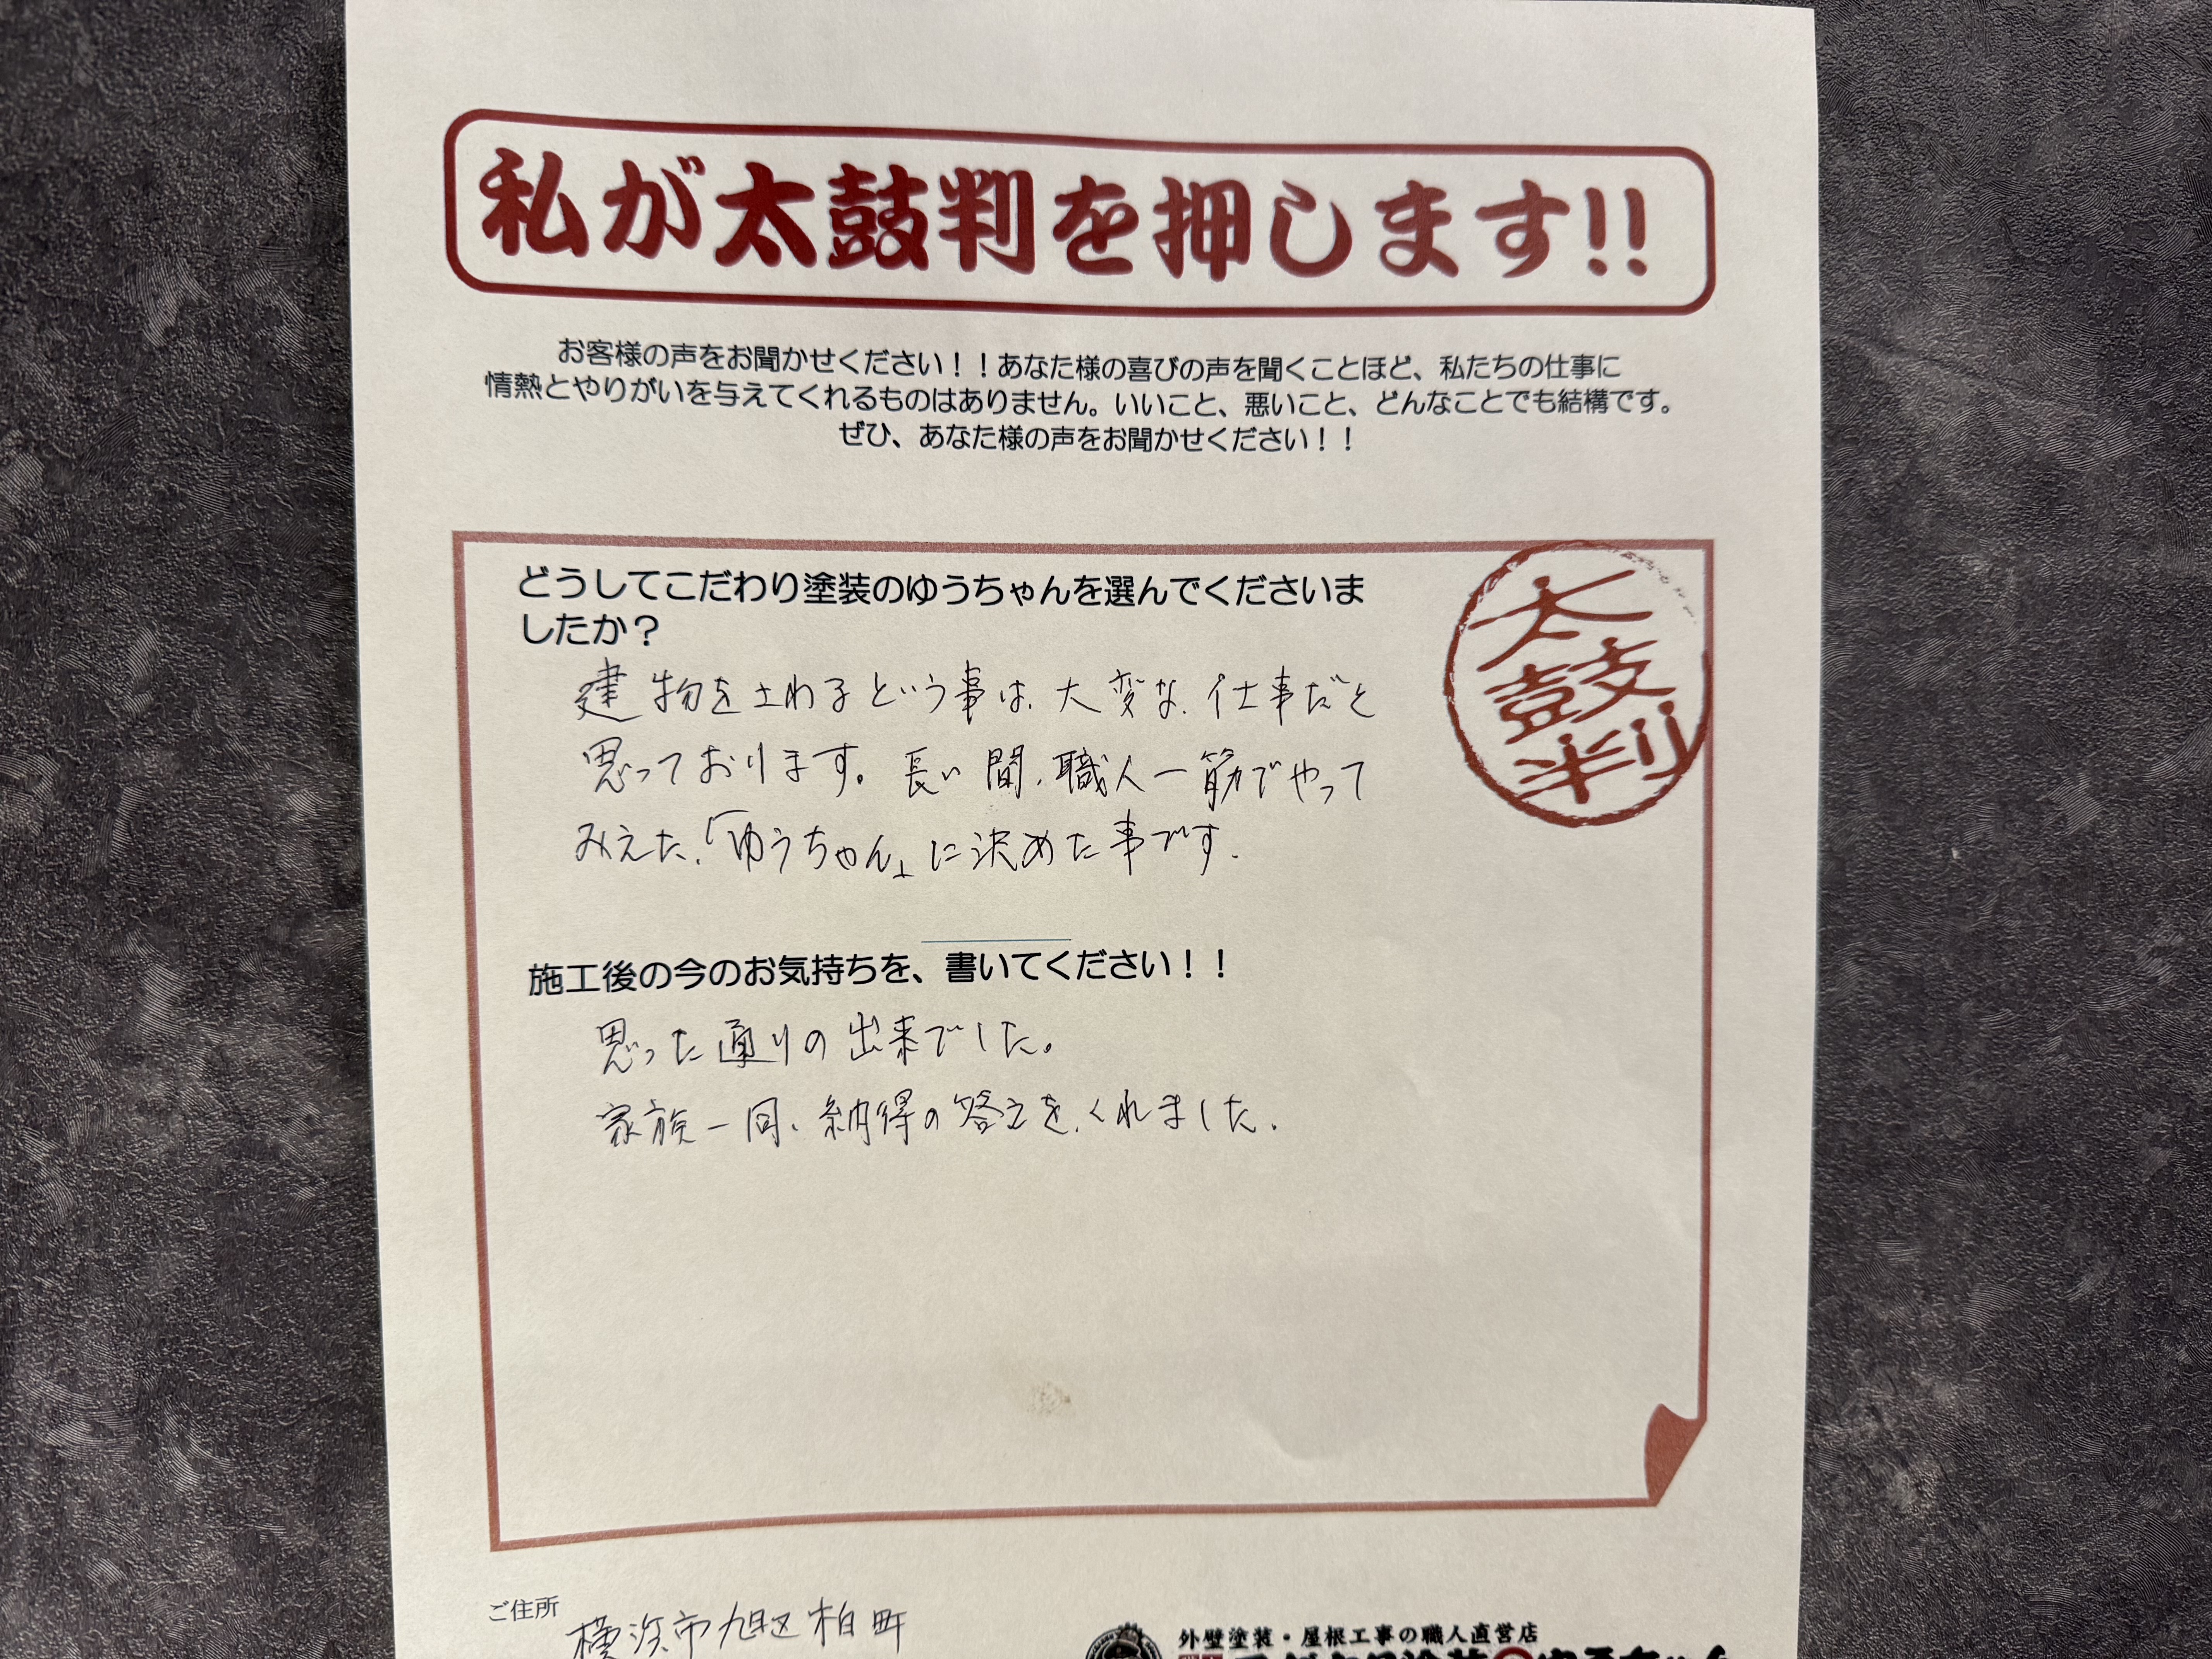 私が太鼓判を押します!!
お客様の声をお聞かせください！！あなた様の喜びの声を聞くことほど、私たちの仕事に
情熱とやりがいを与えてくれるものはありません。いいこと、悪いこと、どんなことでも結構です。
ぜひ、あなた様の声をお聞かせください！！
太鼓判
どうしてこだわり塗装のゆうちゃんを選んでくださいま
したか？
建物をさわるという事は、大変な、仕事だと
思っております。長い間、職人一筋でやって
みえた、「ゆうちゃん」に決めた事です。
施工後の今のお気持ちを、書いてください！！
思った通りの出来でした。
家族一同、納得の答えを、くれました。
ご住所
横浜市旭区柏町
外壁塗装・屋根工事の職人直営店